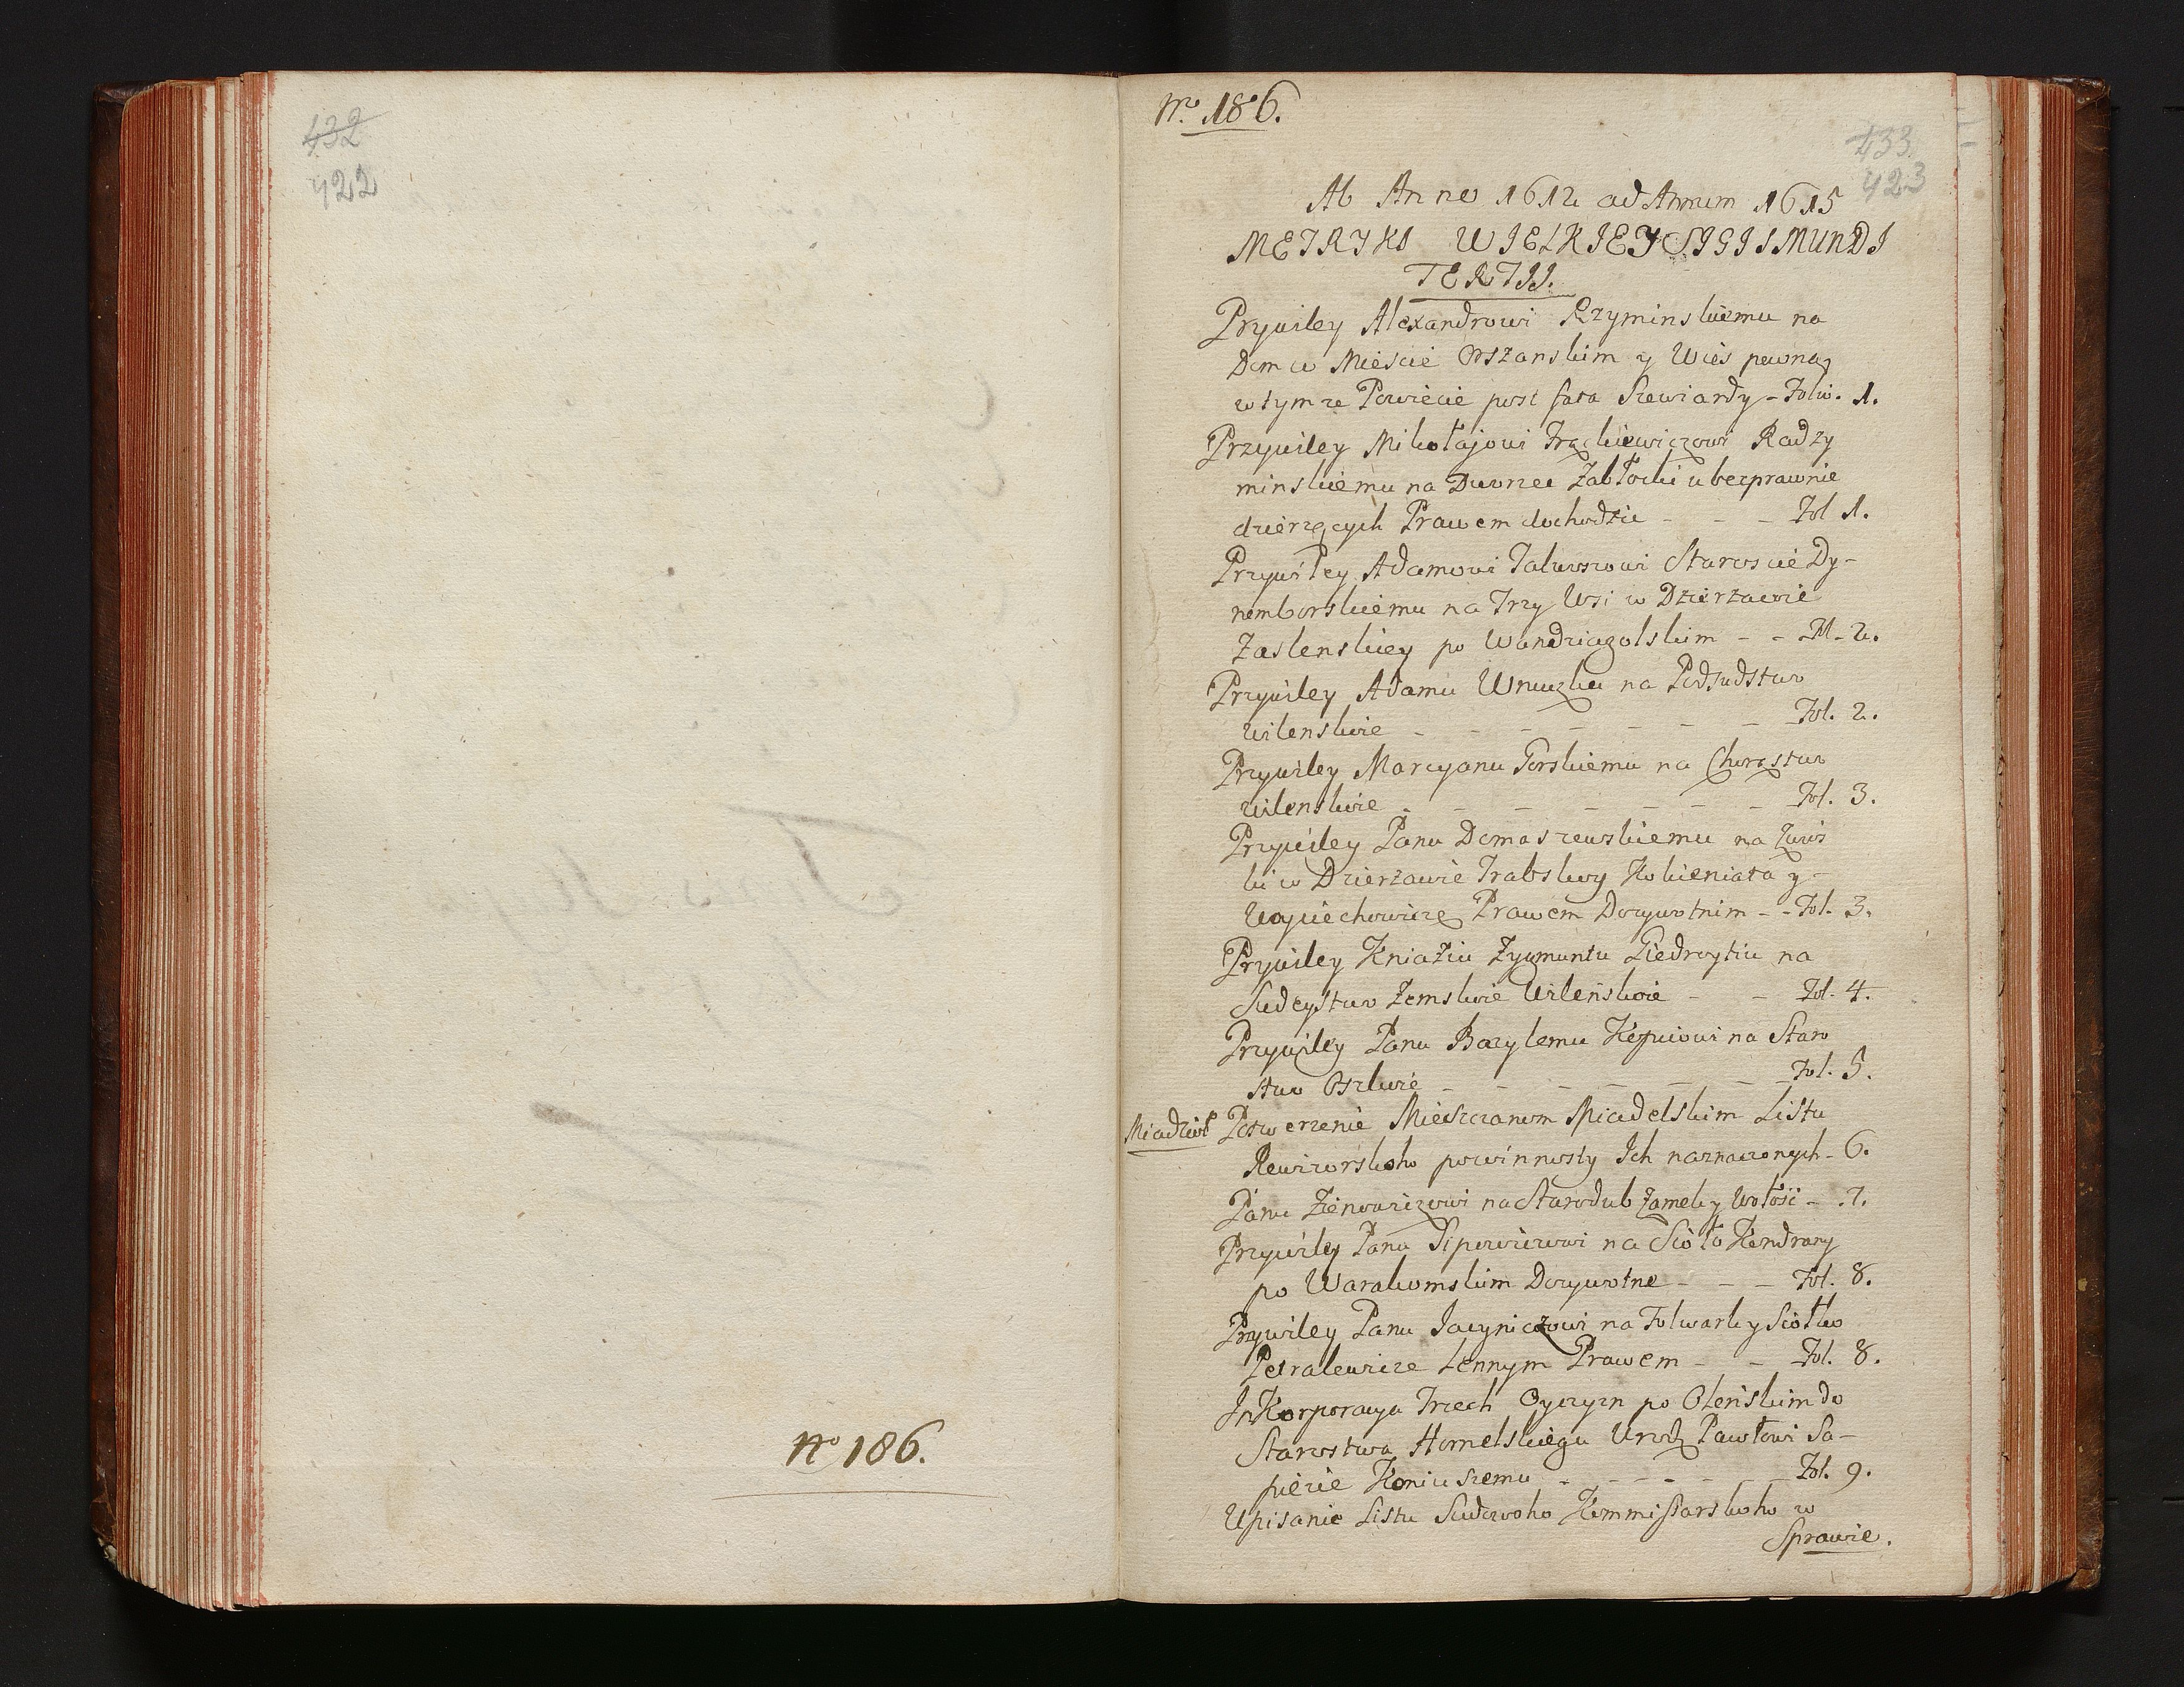 432
422
No 186.
No. 186.
433.
423
Ab Anno 1612 ad Annum 1615
METRYKI WIELKIEY SIGISMUNDI
TERTII.
Prywiley Alexandrowi Rzyminskiemu na
Dom w Mieście Orszanskim y Wieś pewną
w tymze Powiecie post fata Siewiardy - Foliu. 1.
Przywiley Mikołajowi Frąckiewiczowi Radzy
minskiemu na Dworzec Zabłocki u bezprawnie
dzierzących Prawem dochodzic - - - Fol 1.
Przywiley Adamowi Talwoszowi Staroscie Dy-
nemborskiemu na Trzy Wsi w Dzierzawie
Zaslenskiey po Wandziagolskim - - 2.
Przywiley Adamu Wnuczku na Podsudstwo
Wilenskie - - - - - - Fol. 2.
Przywiley Marcyanu Gorskiemu na Chorąstwo
Wilenskie - - - - - - Fol. 3.
Przywiley Panu Domaszewskiemu na
ki w Dzierzawie Trabskoy Kobieniata y-
Woyciechowicze Prawem Dozywotnim - - Fol. 3.
Prywiley Kniaziu Zygmuntu Giedroytiu na
Sudeystwo Zemskie Wileńskoie - - Fol. 4.
Przywiley Panu Bazylemu Kopciowi na Staro
stwo Oszkie - - - - - - Fol. 5.
Miadzioł Potwerzenie Mieszczanom Miadelskim Listu
Rewizorskoho powinnosty Ich naznaczonych - 6.
Panu Zienowiczowi na Starodub Zamek y Wołość - 7.
Przywiley Panu Sipowiczowi na Sioło Kendrany
po Warakomskim Dozywotne - - - Fol. 8.
Prywiley Panu Jacyniczowi na Folwark y Siołko
Petralewicze Lennym Prawem - - Fol. 8.
InKorporacya Trzech Oyczyzn po Oleńskim do
Starostwa Homelskiego Urodz Pawłowi Sa-
pieżie Koniuszemu - - - - - Fol. 9.
Upisanie Listu Sudowoho Kommissarskoho w
Sprawie.